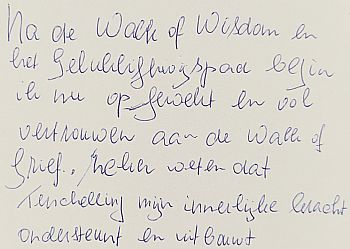 Na de Walk of Wisdom en
het Gelukkigheidspad begin
ik nu opgewekt en vol
vertrouwen aan de Walk of
Grief. weten dat
Terschelling mijn innerlijke kracht
ondersteunt en uitbouwt